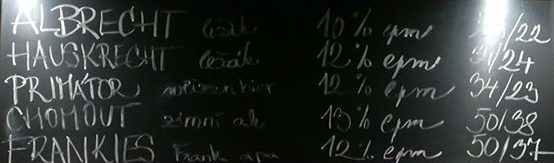 ALBRECHT ležák 10% epm /22
HAUSKRECHT ležák 12% epm /24
PRIMÁTOR weizenbier 12% epm 34/23
CHOMOUT zimní ale 13% epm 50/38
FRANKIES Frank apa 12% epm 50/37